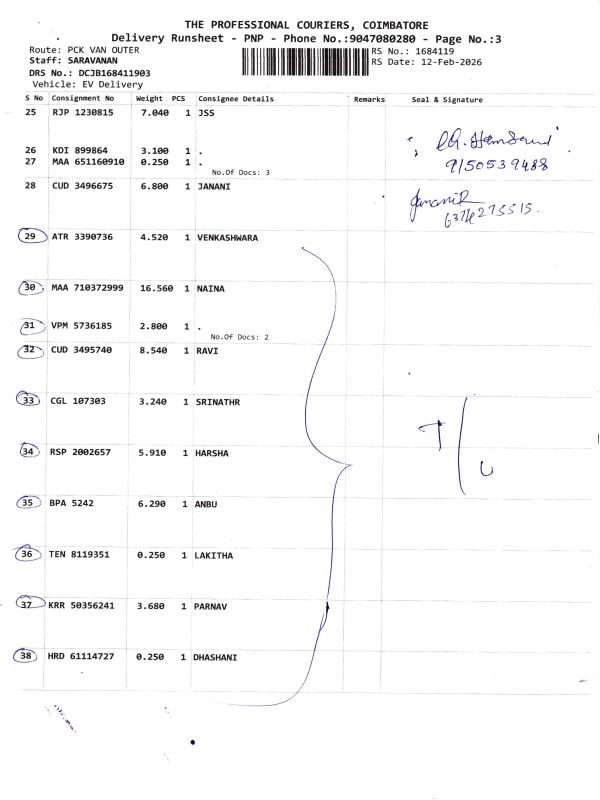 THE PROFESSIONAL COURIERS, COIMBATORE
Delivery Runsheet - PNP - Phone No.:9047080280 - Page No.:3
Route: PCK VAN OUTER
RS No.: 1684119
Staff: SARAVANAN
RS Date: 12-Feb-2026
DRS No.: DCJB168411903
Vehicle: EV Delivery
S No Consignment No Weight PCS Consignee Details Remarks Seal & Signature
25 RJP 1230815 7.040 1 JSS
26 KDI 899864 3.100 1 .
9150539488
27 MAA 651160910 0.250 1 .
No.Of Docs: 3
28 CUD 3496675 6.800 1 JANANI
Janani R
6374275515.
29 ATR 3390736 4.520 1 VENKASHWARA
30 MAA 710372999 16.560 1 NAINA
31 VPM 5736185 2.800 1 .
No.Of Docs: 2
32 CUD 3495740 8.540 1 RAVI
33 CGL 107303 3.240 1 SRINATHR
T/U
34 RSP 2002657 5.910 1 HARSHA
35 BPA 5242 6.290 1 ANBU
36 TEN 8119351 0.250 1 LAKITHA
37 KRR 50356241 3.680 1 PARNAV
38 HRD 61114727 0.250 1 DHASHANI